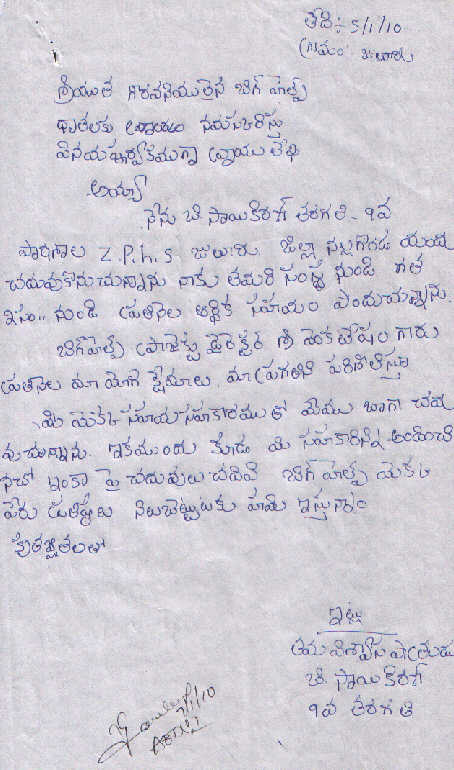 తేది:- 5/1/10
గ్రామం జులూరు
శ్రీయుత గౌరవనీయులైన బిగ్ హెల్ప్
దాతలకు ఉదయం నమస్కరిస్తు
వినయపూర్వకముగా వ్రాయు లేఖ
అయ్యా
నేను బి. సాయికిరణ్ తరగతి - 9వ
పాఠశాల Z.P.h.s జులూరు. జిల్లా నల్లగొండ యందు
చదువుకొనుచున్నాను నాకు తమరి సంస్థ నుండి గత
ఇసం.. నుండి ప్రతినెల ఆర్థిక సహాయం పొందుచున్నాను.
బిగ్ హెల్ప్ ప్రాజెక్టు డైరెక్టర్ శ్రీ వెంకటేషం గారు
ప్రతినెల మా యోగ క్షేమాలు, మా ప్రగతిని పరిశీలిస్తూ
మీ యొక్క సహాయ సహకారముతో మేము బాగా చదు
వుచున్నాను. ఇకముందు కూడా మీ సహకారాన్ని అందించి
నాతో ఇంకా పై చదువులు చదివి బిగ్ హెల్ప్ యొక్క
పేరు ప్రతిష్టలు నిలబెట్టుటకు హామీ ఇస్తున్నాం
కృతజ్ఞతలతో
ఇట్లు
తమ విశ్వాసపాత్రుడు
బి. సాయికిరణ్
9వ తరగతి